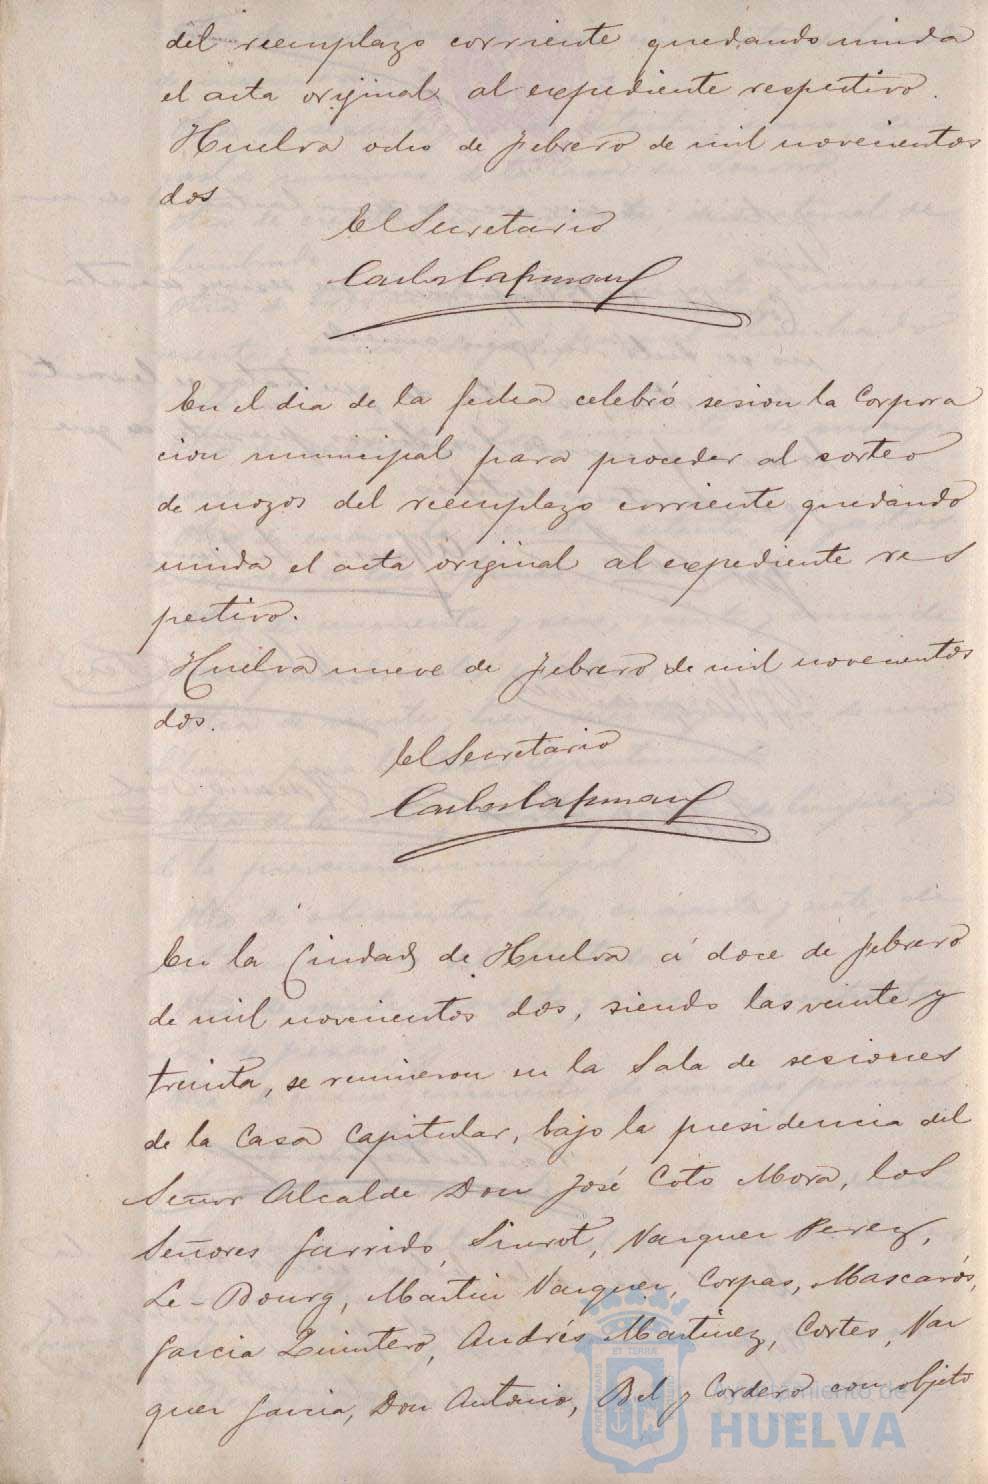 del reemplazo corriente quedando unida
el acta original al expediente respectivo.
Huelva ocho de febrero de mil novecientos
dos
El Secretario
Carlos Lapman
En el dia de la fecha celebró sesion la Corpora
cion municipal para proceder al sorteo
de mozos del reemplazo corriente quedando
unida el acta original al expediente res
pectivo.
Huelva nueve de febrero de mil novecientos
dos.
El Secretario
Carlos Lapman
En la Ciudad de Huelva á doce de febrero
de mil novecientos dos, siendo las veinte y
treinta, se reunieron en la Sala de sesiones
de la Casa Capitular, bajo la presidencia del
Señor Alcalde Don José Coto Mora, los
Señores Garrido, Siurot, Vazquez Perez,
Le-Bourg, Martin Vazquez, Corpas, Mascarós,
Garcia Quintero, Andrés Martinez, Cortes, Vaz
quez Garcia, Don Antonio, Bel y Cordero con objeto
Ayuntamiento de
HUELVA